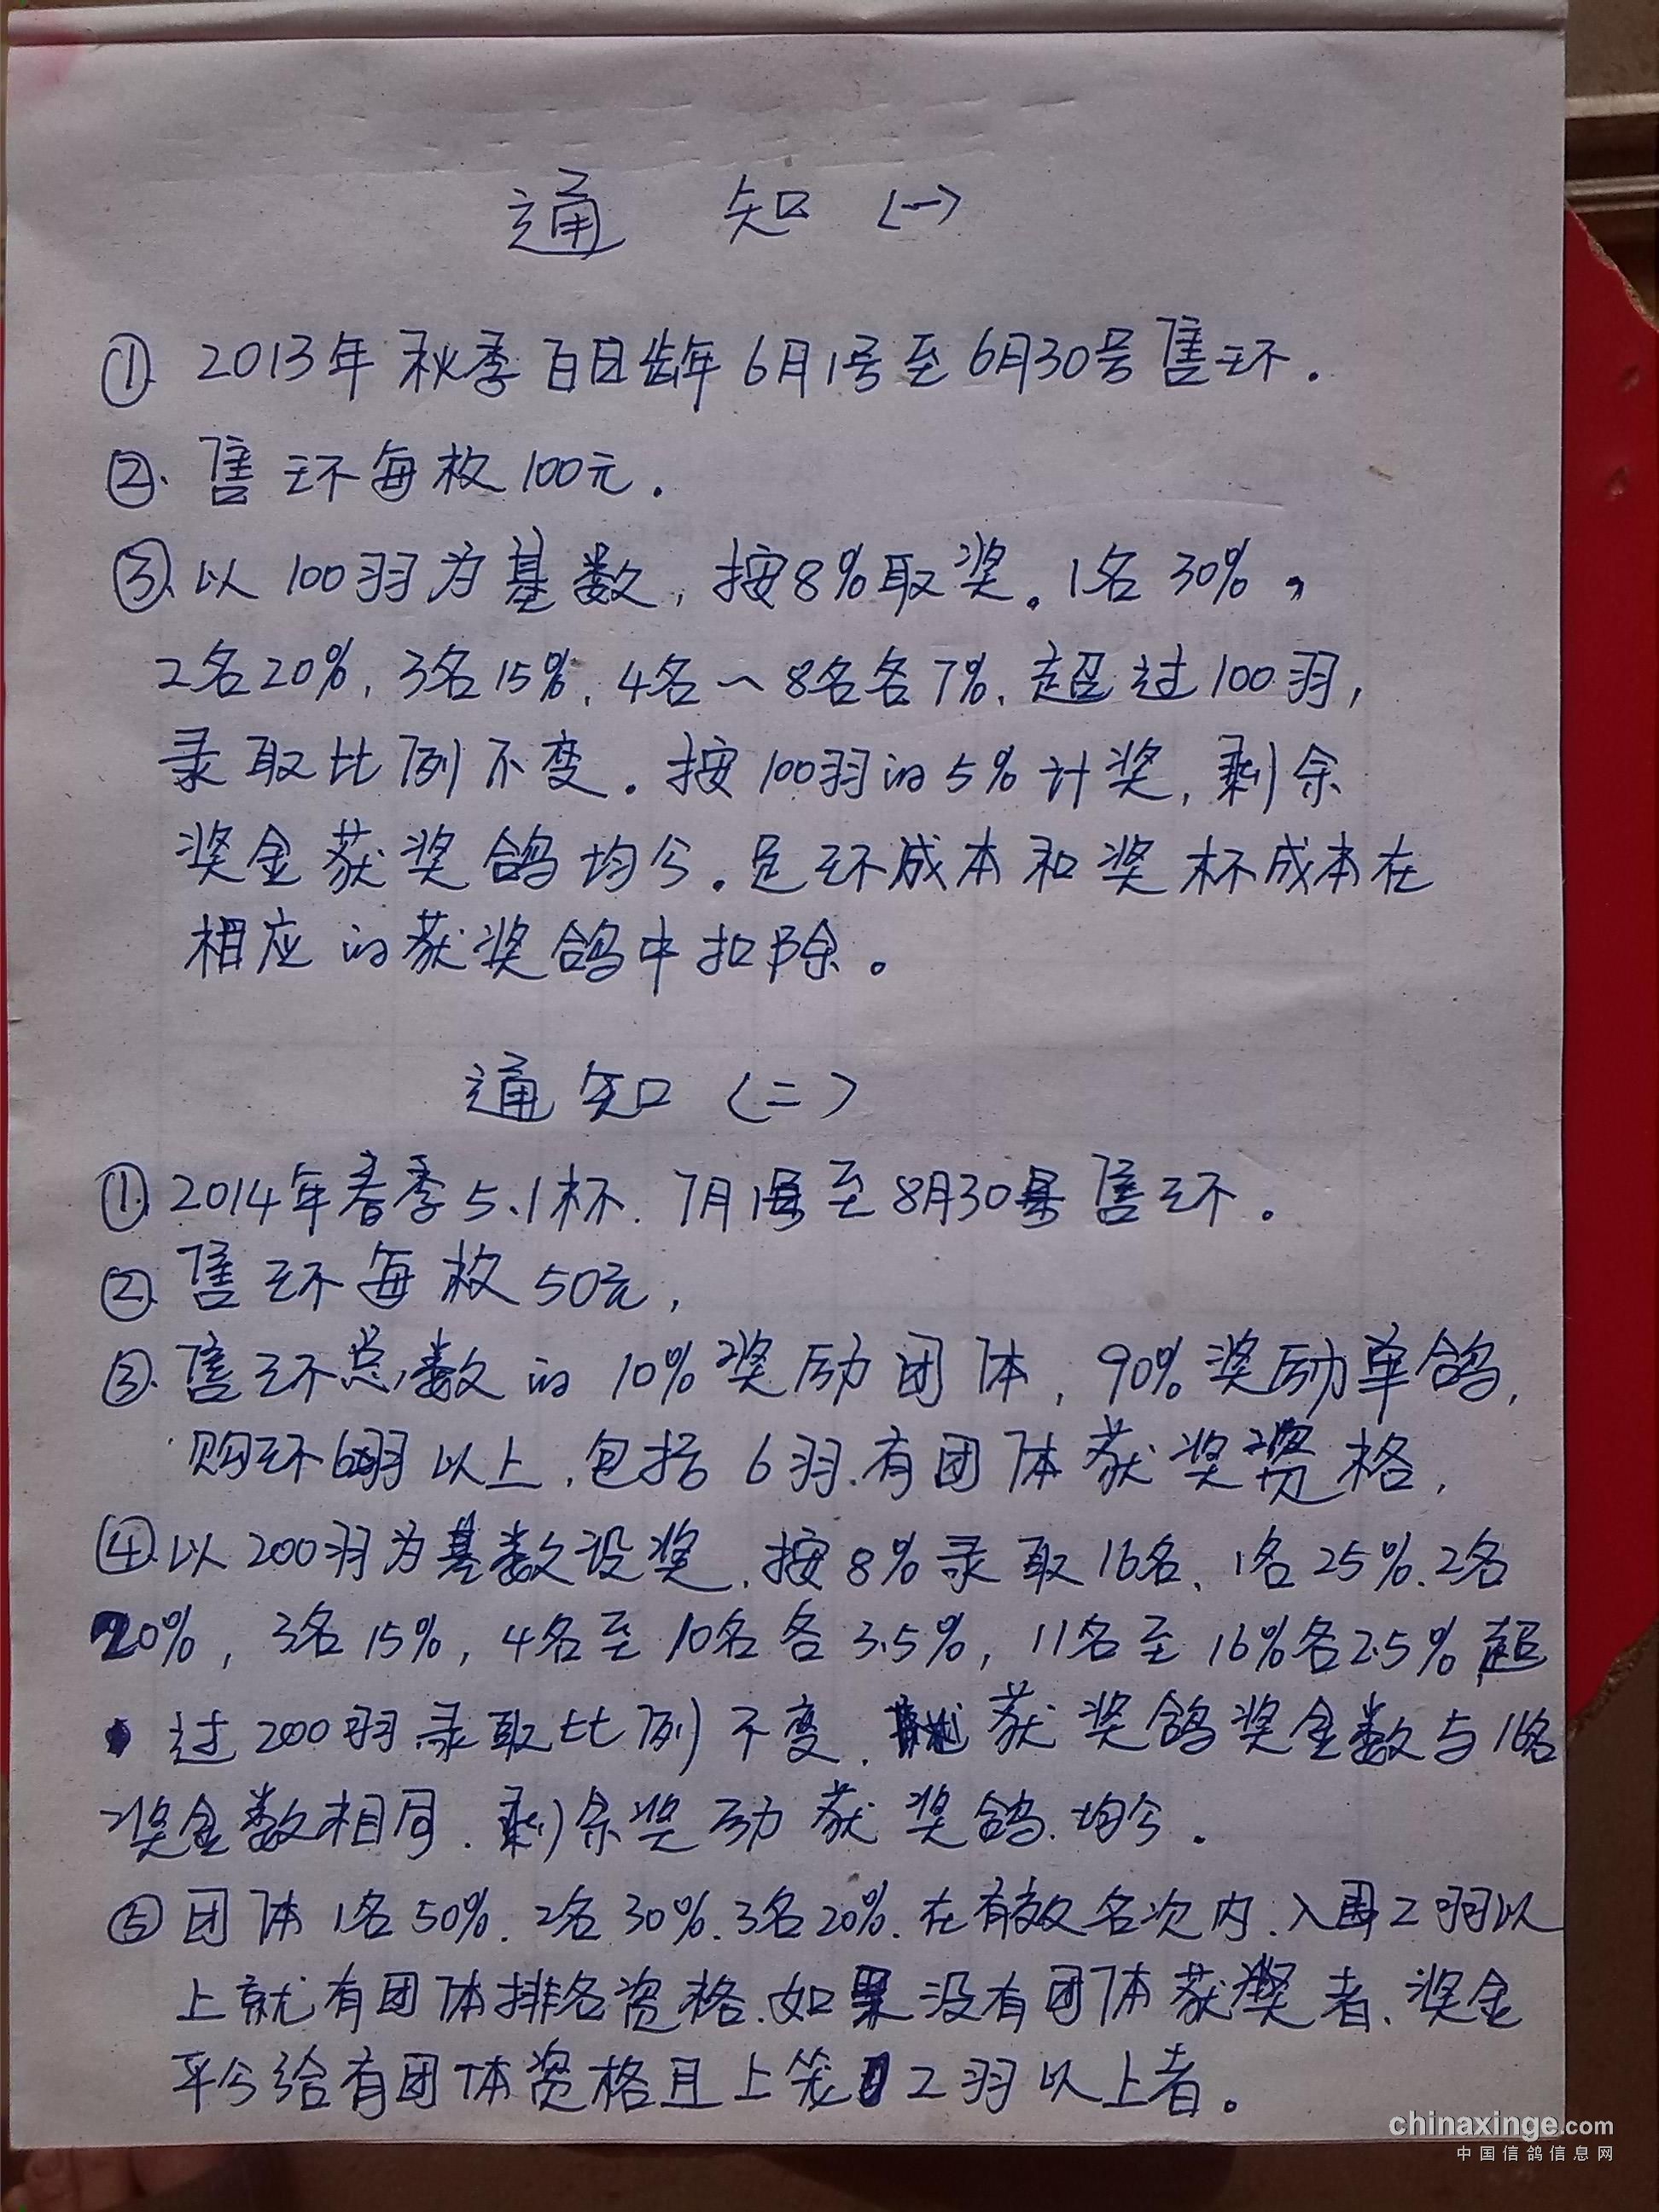 通 知(一)
① 2013年秋季百日龄年6月1号至6月30号售环.
②. 售环每枚100元.
③.以100羽为基数,按8%取奖。1名30%,
2名20%,3名15%,4名~8名各7%.超过100羽,
录取比例不变.按100羽的5%计奖,剩余
奖金获奖鸽均分.足环成本和奖杯成本在
相应的获奖鸽中扣除。
通知(二)
①.2014年春季5.1杯.7月1号至8月30号售环.
②.售环每枚50元,
③.售环总数的10%奖励团体,90%奖励单鸽,
购环6羽以上,包括6羽.有团体获奖资格,
④.以200羽为基数设奖.按8%录取16名、1名25%.2名
20%,3名15%,4名至10名各3.5%,11名至16%各2.5%.超
过200羽.录取比例不变.获奖鸽奖金数与16名
奖金数相同.剩余奖励获奖鸽.均分.
⑤团体1名50%.2名30%.3名20%.在有效名次内.入围2羽以
上就有团体排名资格.如果没有团体获奖者.奖金
平分给有团体资格且上笼2羽以上者。
chinaxinge.com
中国信鸽信息网